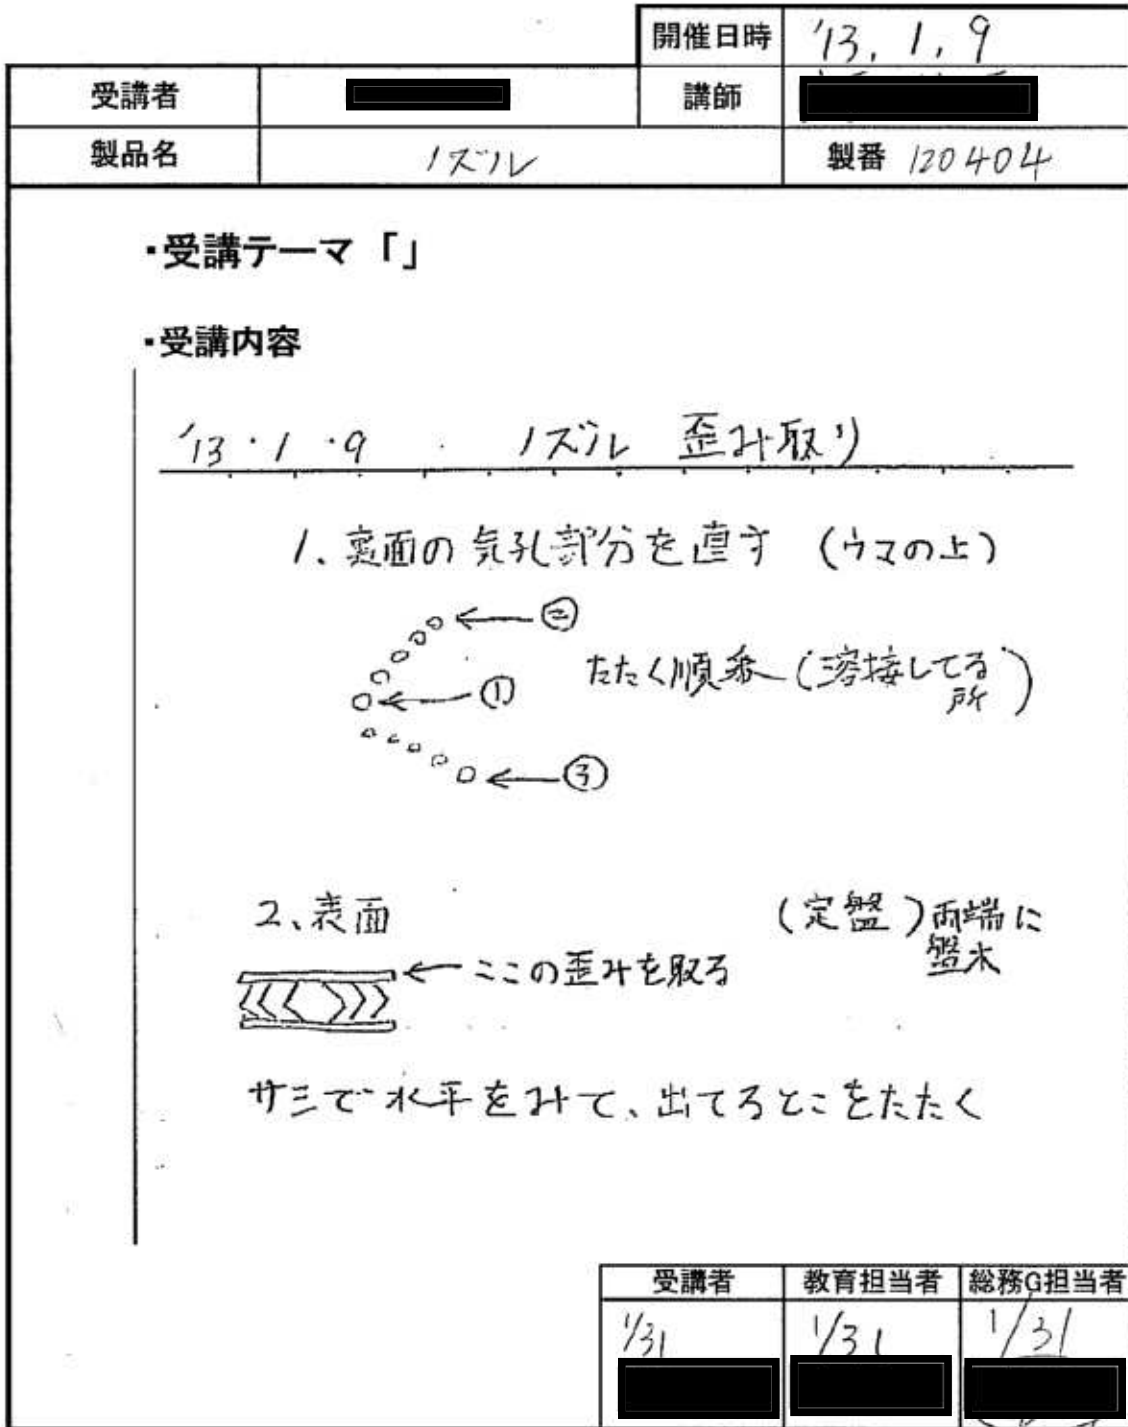 開催日時 '13. 1. 9
受講者 講師
製品名 ノズル 製番 120404
・受講テーマ「」
・受講内容
'13・1・9 ノズル 歪み取り
1、裏面の気孔部分を直す (ウマの上)
②
たたく順番 (溶接してる所)
①
③
2、表面 (定盤) 両端に盤木
ここの歪みを取る
サミで水平をみて、出てるとこをたたく
受講者 教育担当者 総務G担当者
1/31 1/31 1/31